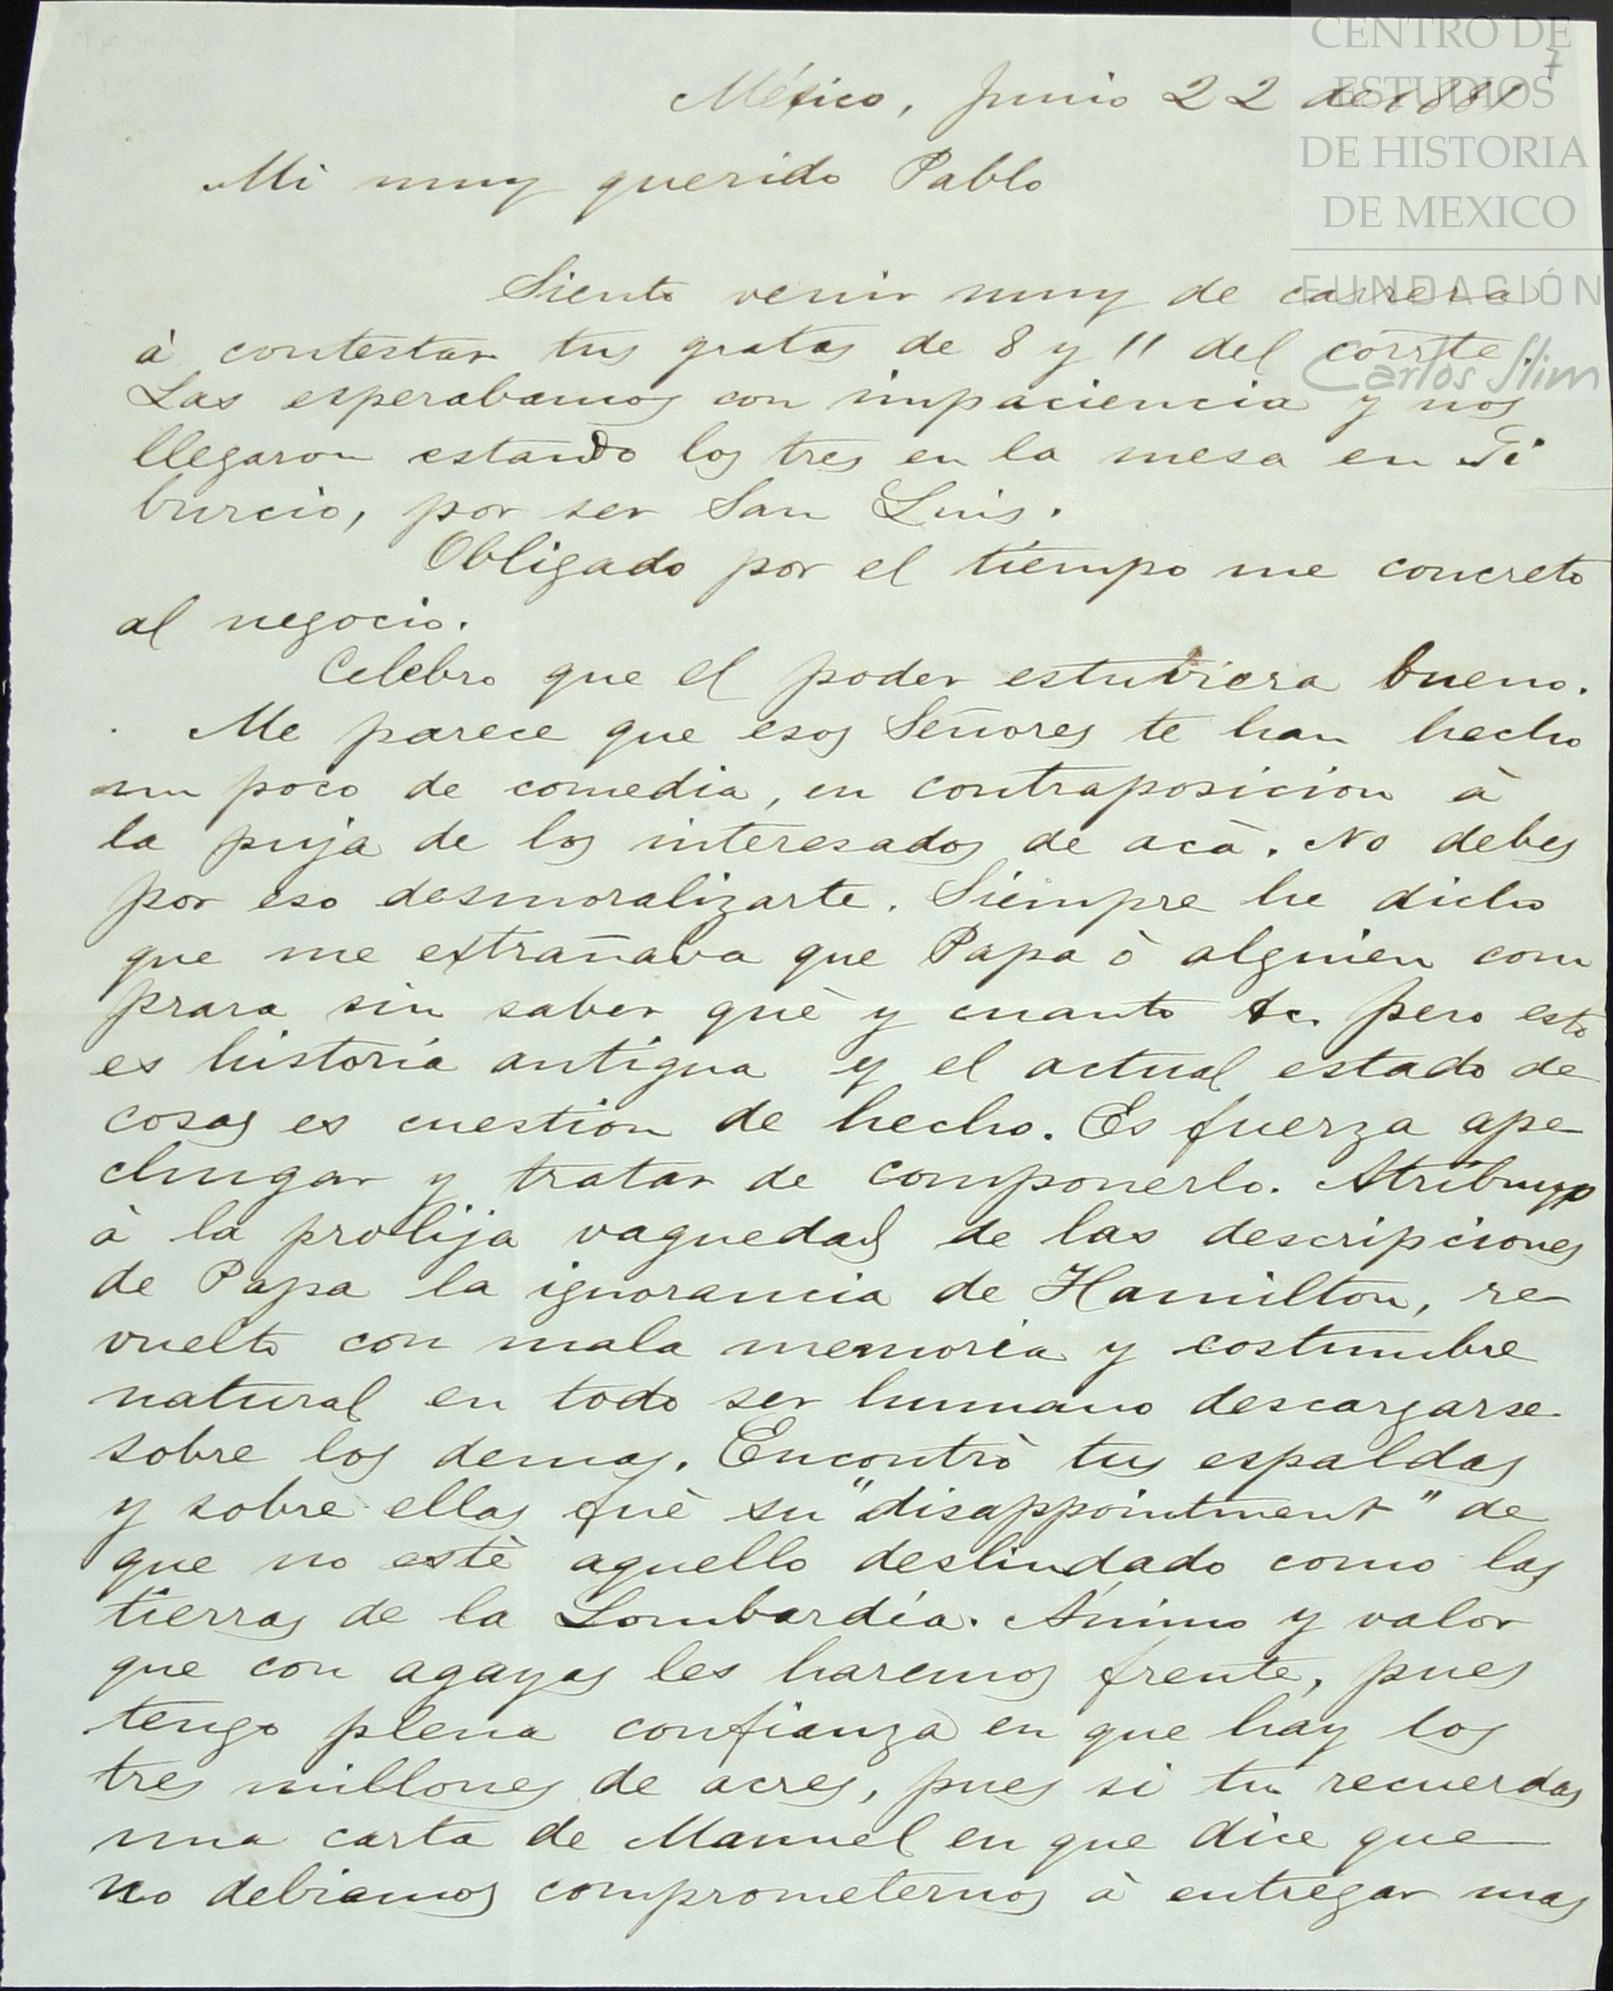 CENTRO DE
ESTUDIOS
DE HISTORIA
DE MEXICO
FUNDACIÓN
Carlos Slim
7
México, Junio 22 de 1881
Mi muy querido Pablo
Siento venir muy de carrera
à contestar tus gratas de 8 y 11 del corrte.
Las esperabamos con impaciencia y nos
llegaron estando los tres en la mesa en Ti
burcio, por ser San Luis.
Obligado por el tiempo me concreto
al negocio.
Celebro que el poder estuviera bueno.
Me parece que esos Señores te han hecho
un poco de comedia, en contraposicion à
la puja de los interesados de acà. No debes
por eso desmoralizarte. Siempre he dicho
que me extrañaba que Papa ò alguien com
prara sin saber què y cuanto &c. pero esto
es historia antigua y el actual estado de
cosas es cuestion de hecho. Es fuerza ape-
chugar y tratar de componerlo. Atribuyo
à la prolija vaguedad de las descripciones
de Papa la ignorancia de Hamilton, re-
vuelto con mala memoria y costumbre
natural en todo ser humano descargarse
sobre los demas. Encontrò tus espaldas
y sobre ellas fuè su "disappointment" de
que no estè aquello deslindado como las
tierras de la Lombardia. Ánimo y valor
que con agayas les haremos frente, pues
tengo plena confianza en que hay los
tres millones de acres, pues si tu recuerdas
una carta de Manuel en que dice que
no debiamos comprometernos à entregar mas